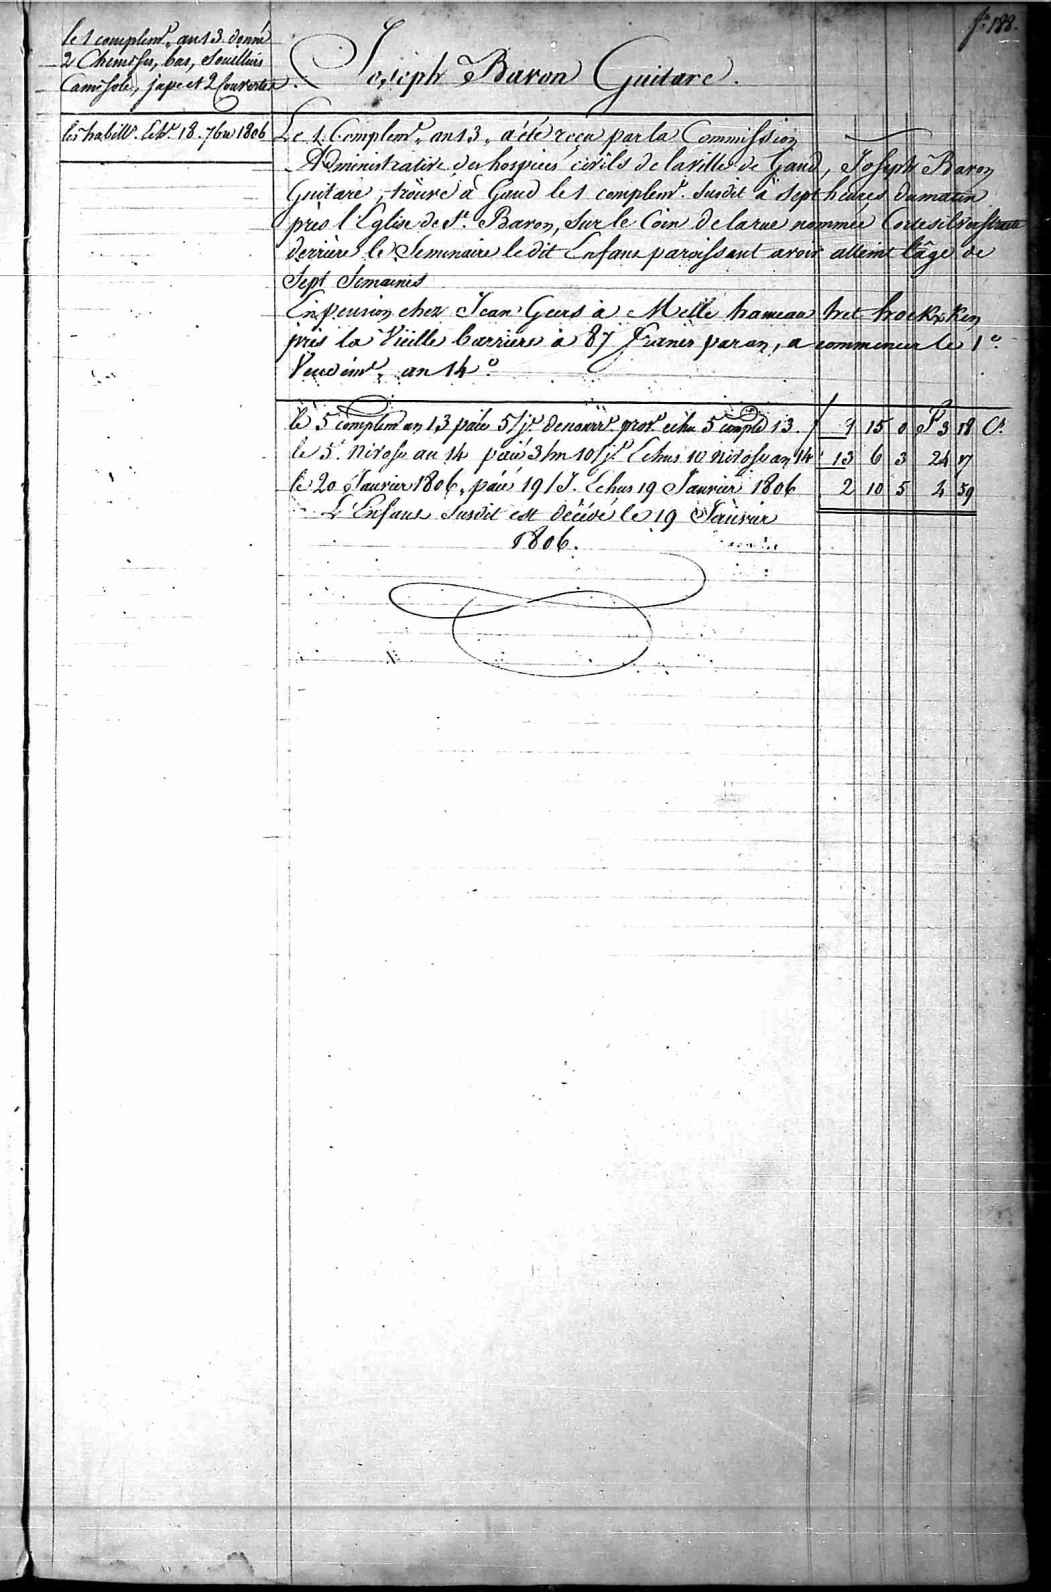 fo. 188.
le 1 complemr. an 13 donné
2 Chemises, bas, Souilluis
Camisole, jupe et 2 Couvertes.
Joseph Bavon Guitare.
les habillts. Lebr. 18. 7bre 1806
Le 1 Complemr. an 13, a été reçu par la Commission
Administrative des hospices civils de la ville de Gand, Joseph Bavon
Guitare, trouvé à Gand le 1 complemr. susdit à sept heures du matin
près l'Eglise de St. Bavon, sur le Coin de la rue nommée
derrière le Seminaire le dit Enfant paroissant avoir atteint l'âge de
Sept Semaines
En pension chez Jean Geers à Melle hameau het hoeksken
près la Vieille barrière à 87 Francs par an, a commencer le 1o.
Vendémr. an 14o
le 5 complem an 13 païé 5/jrs de nourrr. prov. echu 5 compld 13. / 1 15 0 F 3 18 Cs.
le 5. Nivose an 14 païé 3/m 10/jrs Echus 10 nivose an 14 13 6 3 24 17
le 20 Janvier 1806, païé 19/J. Echus 19 Janvier 1806 2 10 5 4 59
L'Enfant Susdit est décédé le 19 Janvier
1806.